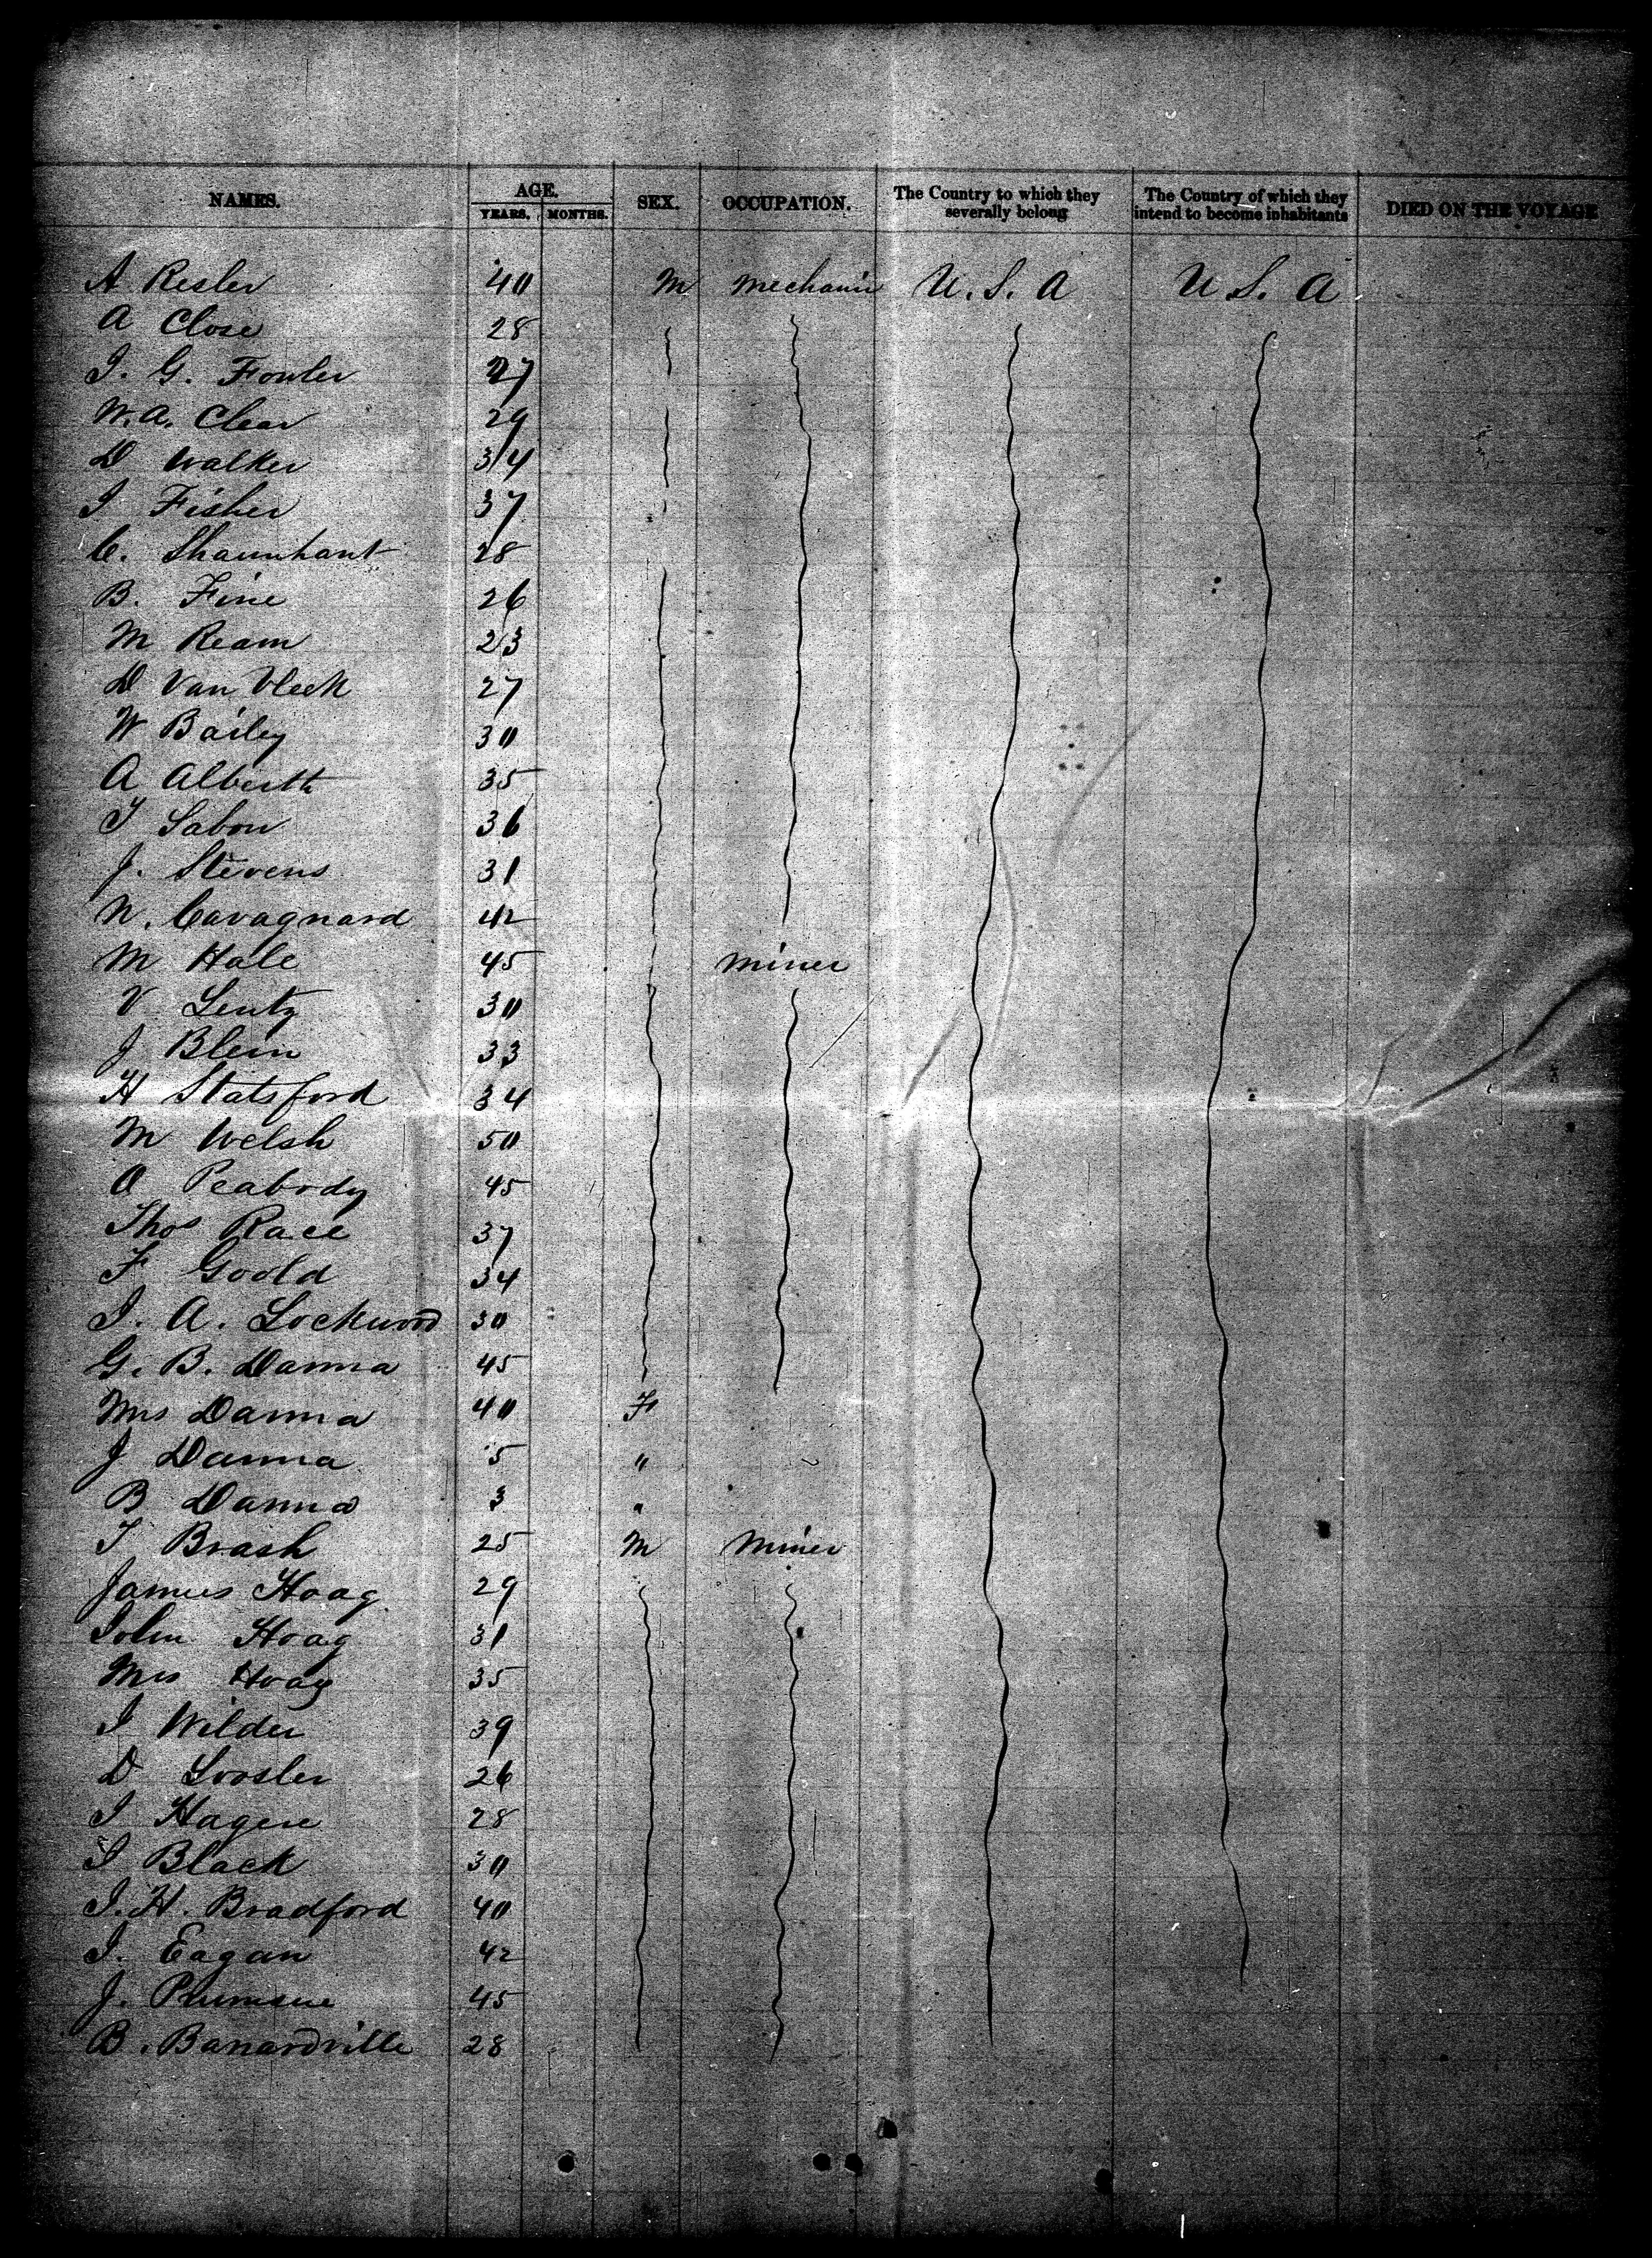 NAMES. AGE. YEARS. MONTHS. SEX. OCCUPATION. The Country to which they severally belong The Country of which they intend to become inhabitants DIED ON THE VOYAGE
A Resler 40 M Mechanic U.S.A U.S.A
A Close 28
I. G. Fowler 27
W.A. Clear 29
D Walker 34
I Fisher 37
C. Shaunhant 28
B. Fine 26
M Ream 23
D Van Vleck 27
W Bailey 30
A Alberth 35
T Sabon 36
J. Stevens 31
N. Cavagnard 42
M Hale 45 Miner
V Lentz 30
J Blein 33
H Statsford 34
M Welsh 50
O Peabody 45
Thos Race 37
F Goold 34
I. A. Lockwood 30
G. B. Danna 45
Mrs Danna 40 F
J Danna 5 "
B Danna 3 "
T Brash 25 M Miner
James Hoag 29
John Hoag 31
Mrs Hoag 35
I Wilder 39
D Loosler 26
I Hagere 28
I Black 30
I. H. Bradford 40
I. Eagan 42
J. 45
B. Banardville 28